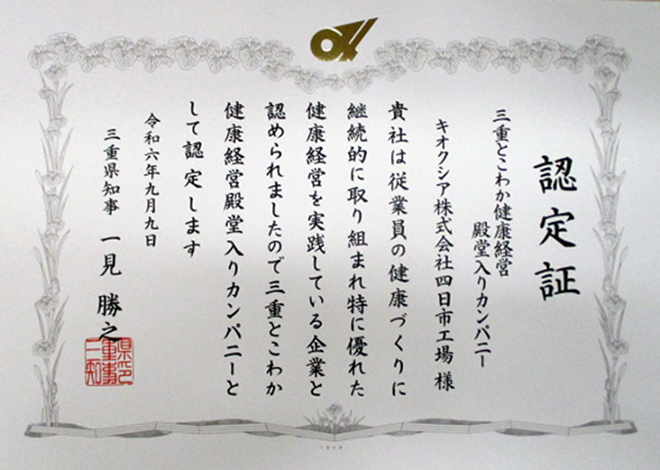 認定証
三重とこわか健康経営
殿堂入りカンパニー
キオクシア株式会社四日市工場 様
貴社は従業員の健康づくりに
継続的に取り組まれ特に優れた
健康経営を実践している企業と
認められましたので三重とこわか
健康経営殿堂入りカンパニーと
して認定します
令和六年九月九日
三重県知事 一見 勝之